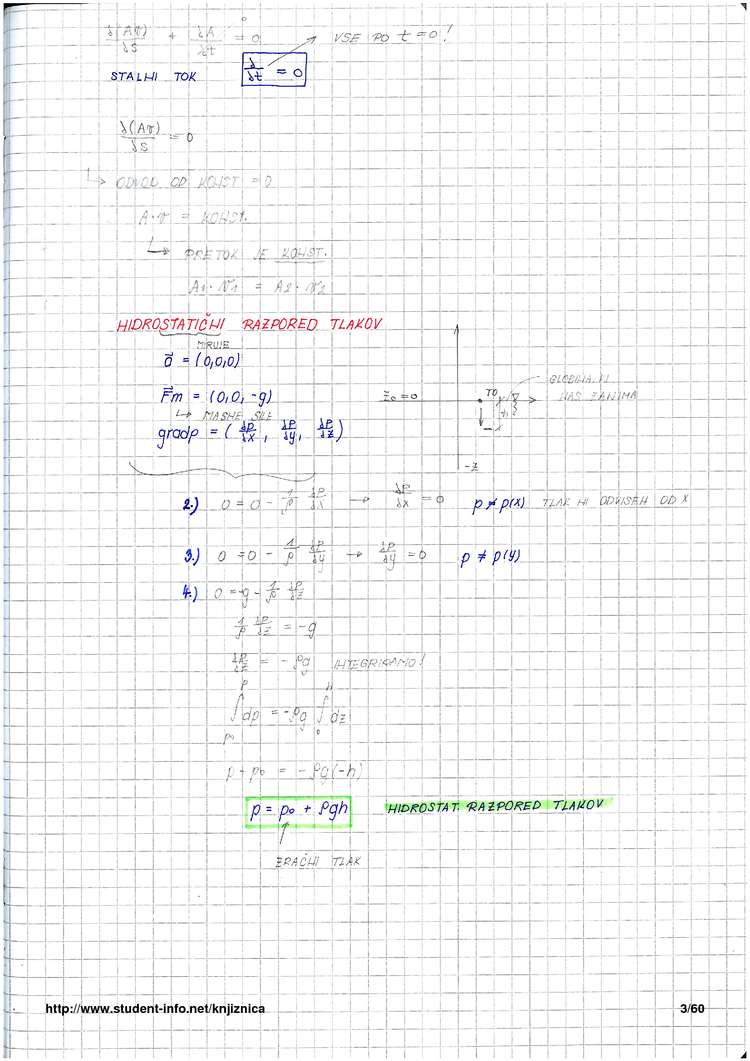 ∂(Av)/∂s + ∂A/∂t = 0 → VSE PO t = 0!
STALNI TOK ∂/∂t = 0
∂(Av)/∂s = 0
↳ ODVOD OD KONST = 0
A·v = KONST.
↳ PRETOK JE KONST.
A1·v1 = A2·v2
HIDROSTATIČNI RAZPORED TLAKOV
MIRUJE
a⃗ = (0,0,0)
F⃗m = (0,0,-g)
↳ MASNE SILE
gradp = (∂p/∂x, ∂p/∂y, ∂p/∂z)
z0 = 0
T0
GLOBINA, KI
NAS ZANIMA
-z
2.) 0 = 0 - 1/ρ ∂p/∂x → ∂p/∂x = 0 p ≠ p(x) TLAK NI ODVISEN OD X
3.) 0 = 0 - 1/ρ ∂p/∂y → ∂p/∂y = 0 p ≠ p(y)
4.) 0 = -g - 1/ρ ∂p/∂z
1/ρ ∂p/∂z = -g
∂p/∂z = -ρg INTEGRIRAMO!
∫dp = -ρg ∫dz
p - p0 = -ρg(-h)
p = p0 + ρgh HIDROSTAT. RAZPORED TLAKOV
ZRAČNI TLAK
http://www.student-info.net/knjiznica 3/60